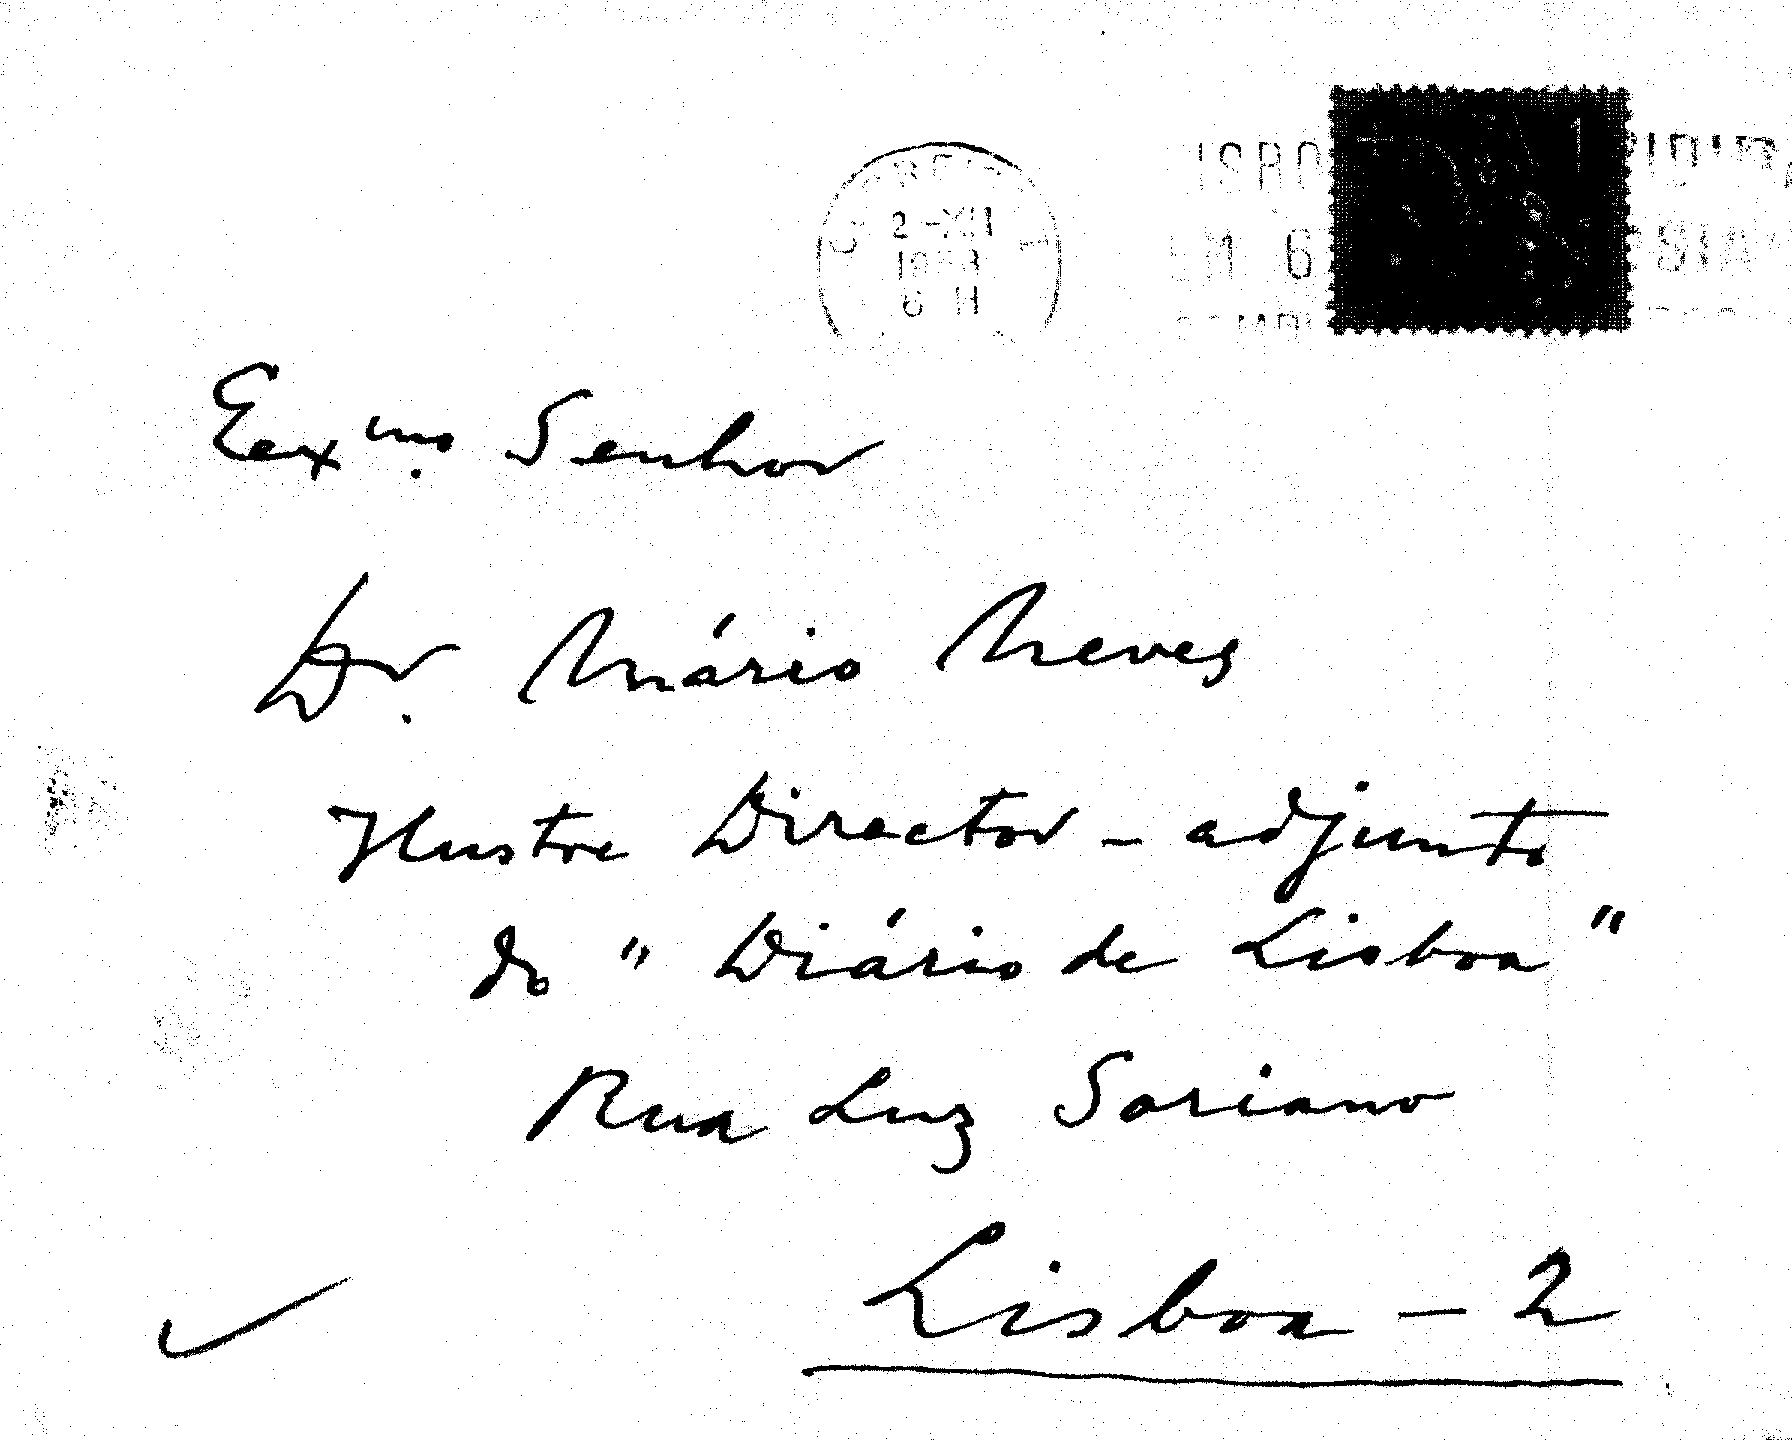 2-XII
6 H
Exmo. Senhor
Dr. Mário Neves
Ilustre Director-adjunto
do "Diário de Lisboa"
Rua Luz Soriano
Lisboa - 2